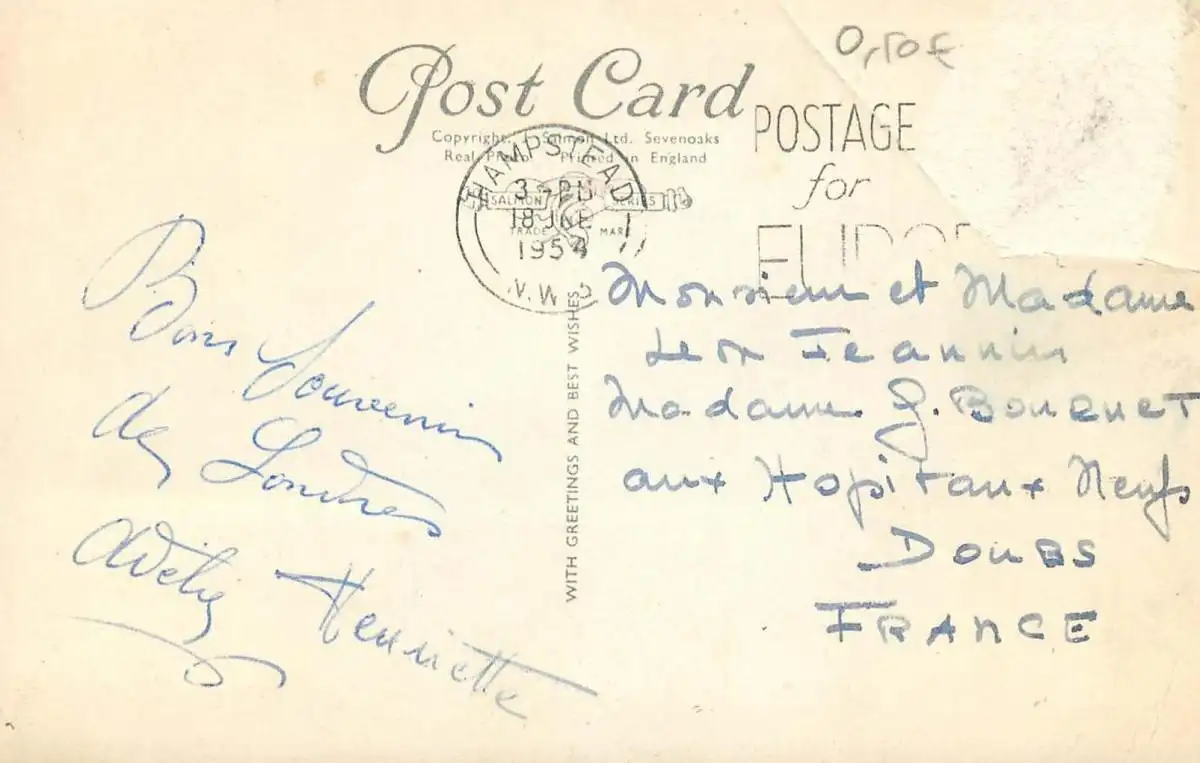 0,50€
Post Card
Copyright J. Salmon Ltd. Sevenoaks
Real Photo Printed in England
SALMON SERIES
TRADE MARK
HAMPSTEAD
3 - PM
18 JNE
1954
N.W.3
POSTAGE
for
EUROPE
WITH GREETINGS AND BEST WISHES
Bons Souvenirs
de Londres
Henriette
Monsieur et Madame
Leon Jeannin
Madame G. Bouquet
aux Hopitaux Neufs
DOUBS
FRANCE